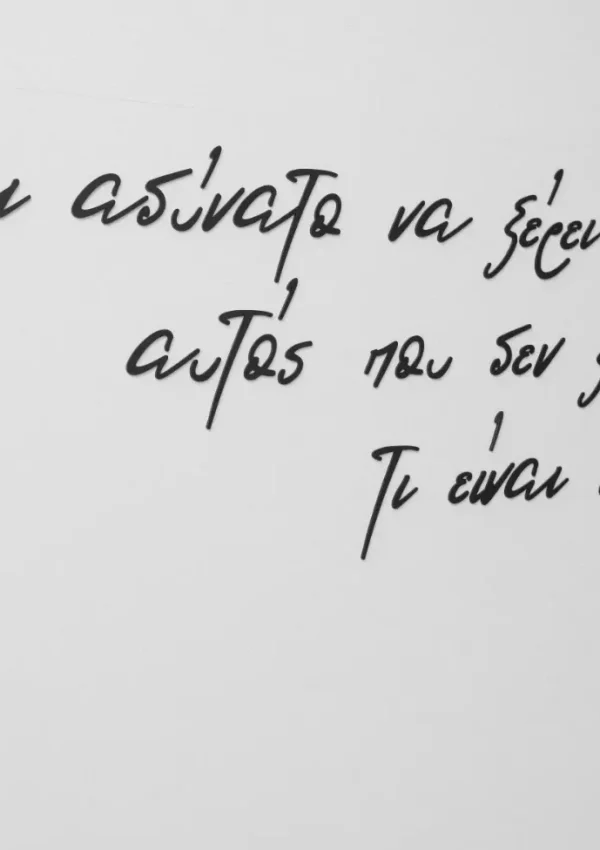 αδύνατο να ξέρει
αυτός που δεν
Τι είναι